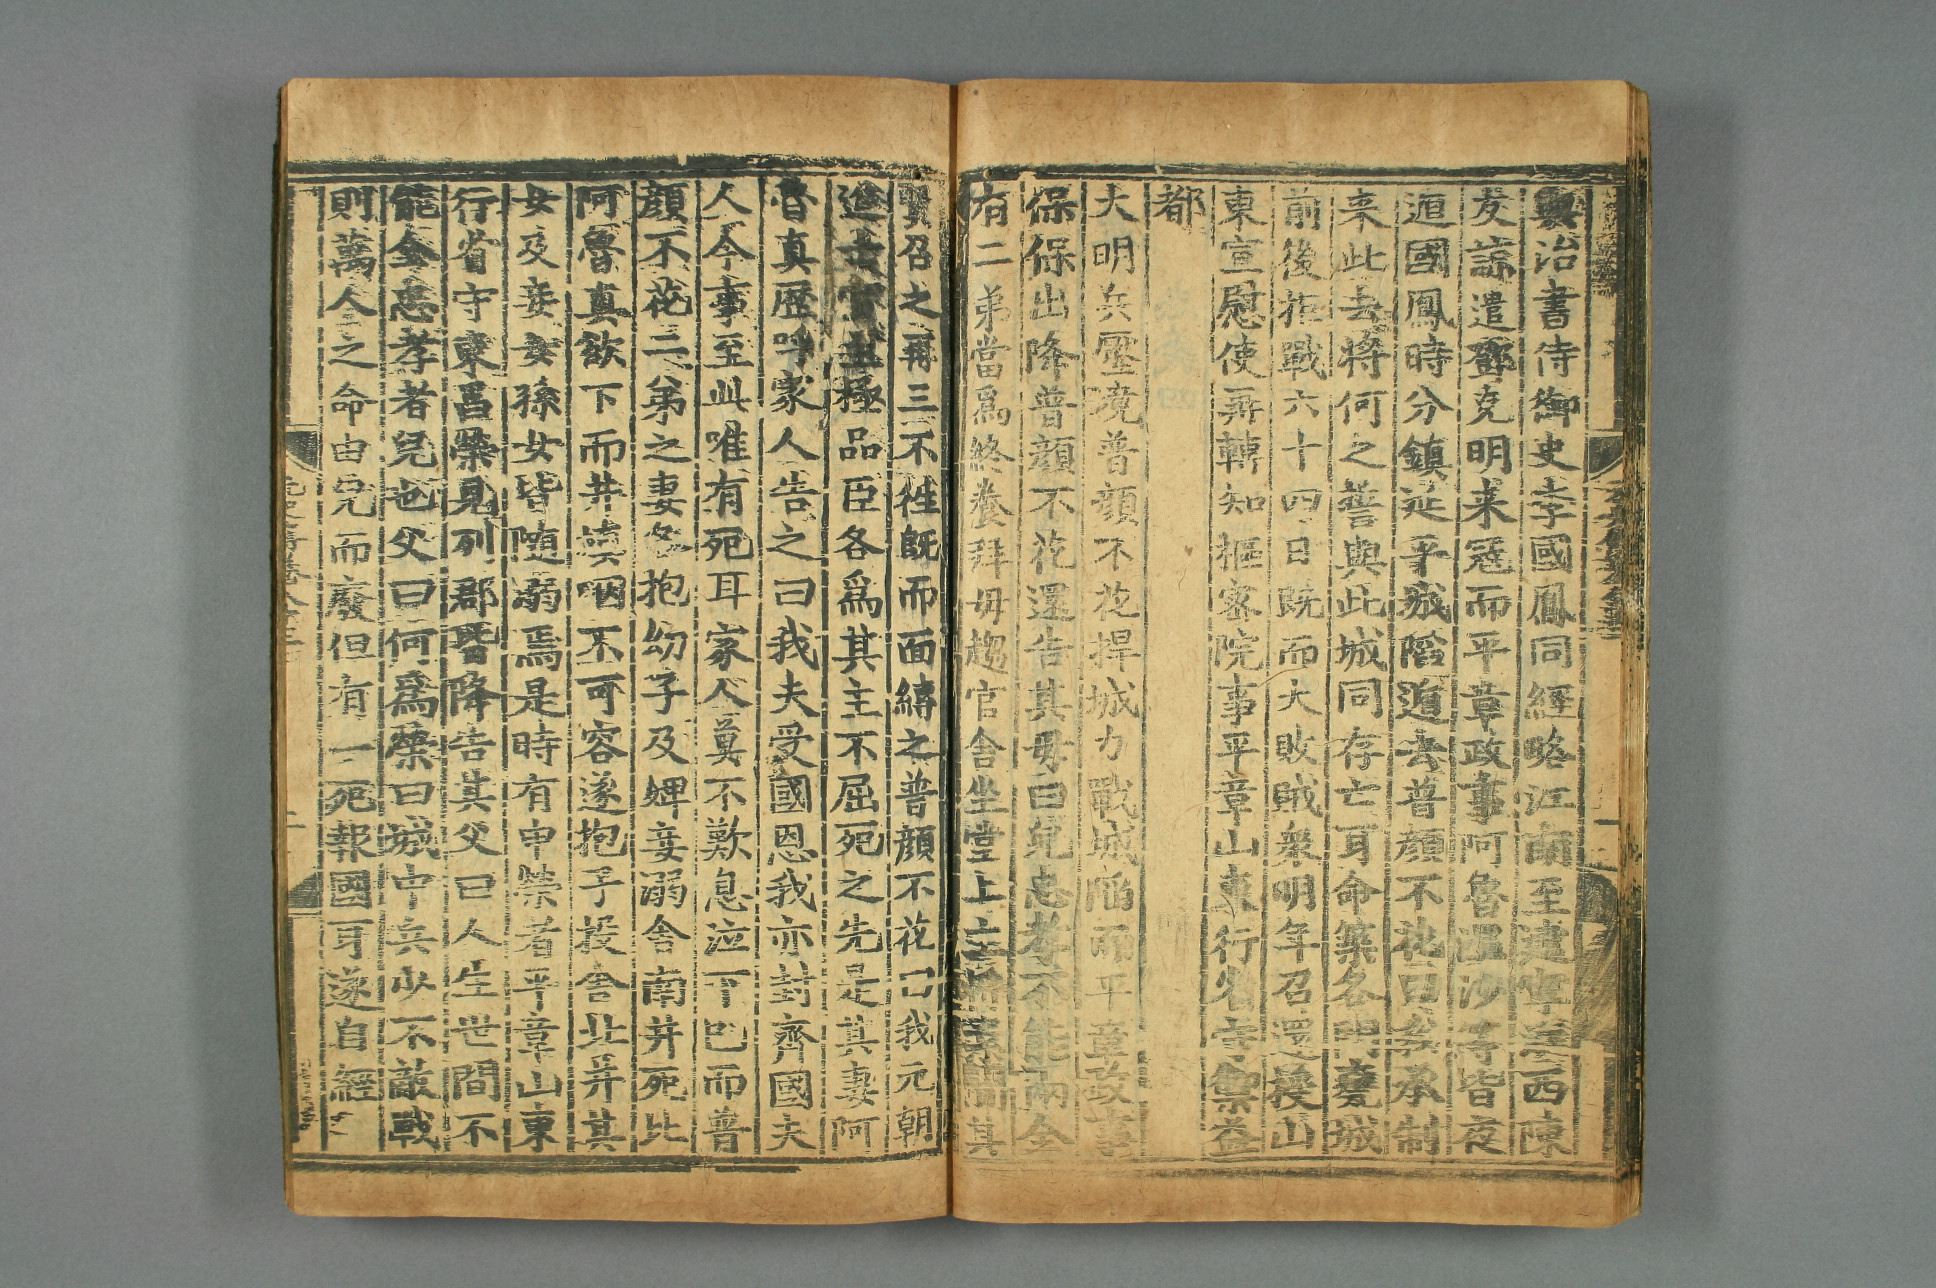 與治書侍御史李國鳳同經略江南至建寧江西陳
友諒遣鄧克明来冦而平章政事阿魯温沙等皆夜
遁國鳳時分鎮延平城陷遁去普顏不花曰我承制
来此去将何之誓與此城同存亡耳命築各門甕城
前後拒戰六十四日既而大敗賊衆明年召還授山
東宣慰使再轉知樞密院事平章山東行省守禦益
都
大明兵壓境普顏不花捍城力戰城陷而平章政事
保保出降普顏不花還告其母曰兒忠孝不能兩全
有二弟當爲終養拜母趨官舍坐堂上主將素聞其
賢召之再三不徃既而面縛之普顏不花曰我元朝
進士官至極品臣各爲其主不屈死之先是其妻阿
魯真歴呼家人告之曰我夫受國恩我亦封齊國夫
人今事至此唯有死耳家人莫不歎息泣下已而普
顏不花二弟之妻各抱幼子及婢妾溺舍南井死比
阿魯真欲下而井填咽不可容遂抱子投舍北井其
女及妾女孫女皆随溺焉是時有申榮者平章山東
行省守東昌榮見列郡皆降告其父曰人生世間不
能全忠孝者兒也父曰何爲榮曰城中兵少不敵戰
則萬人之命由兒而廢但有一死報國耳遂自經
元史傳卷八十三